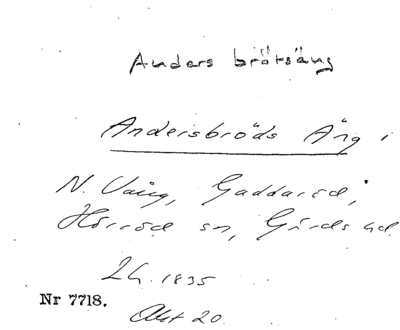 Anders brötsäng
Andersbröds Äng i
N. Vång, Gaddaröd,
Hörröd sn, Gärds hd
Lh. 1835
Nr 7718.
Akt 20